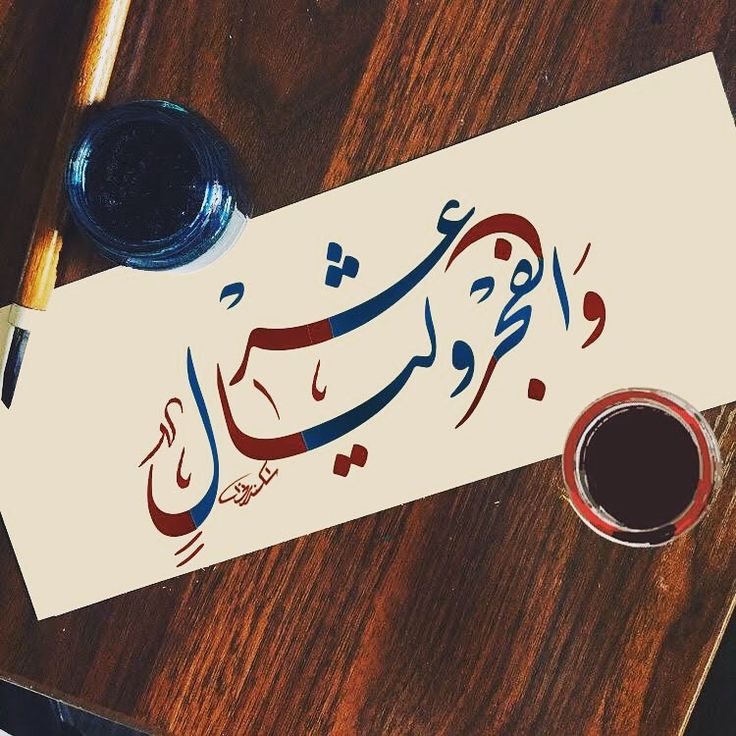 وَالفجر وليالٍ عشر